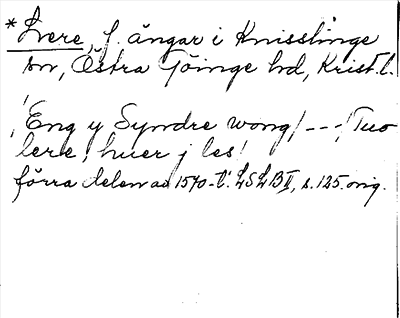 *Lvere, f. ängar i Knisslinge
sn, Östra Göinge hd, Krist.l.
"Eng y Syndre wong/---/Tuo
lere, huer j les!
förra delen av 1570-t. LSLB II, s. 125. orig.